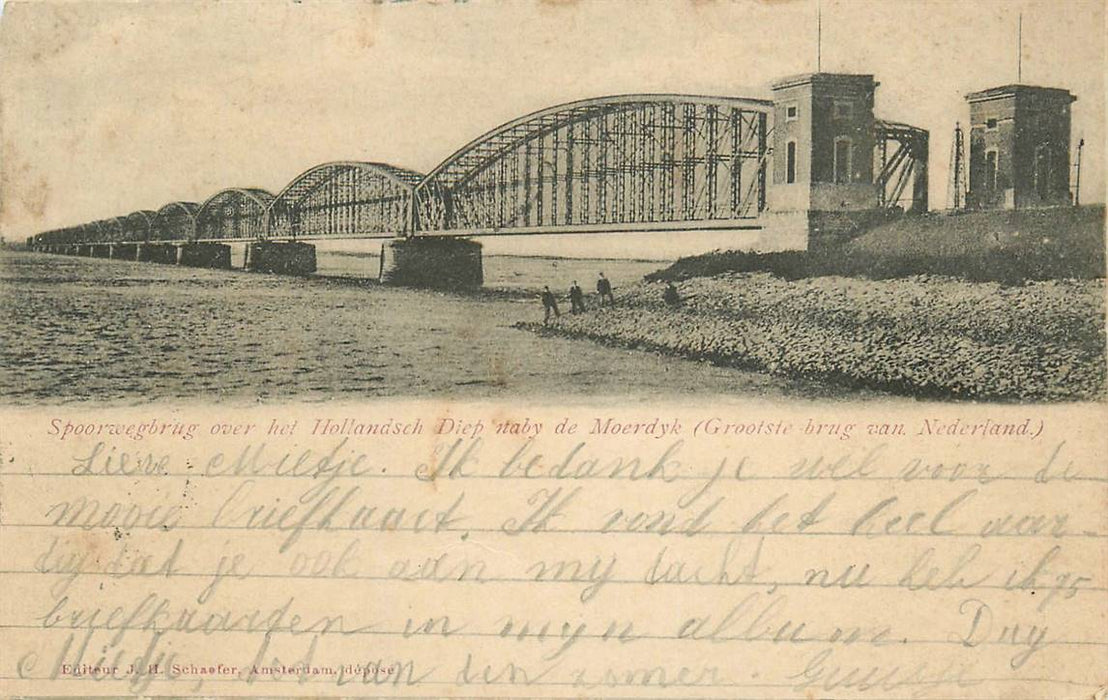 Spoorwegbrug over het Hollandsch Diep naby de Moerdyk (Grootste brug van Nederland.)
Lieve Mietje. Ik bedank je wel voor de
mooie briefkaart. Ik vond het heel aar-
dig dat je ook aan my dacht, nu heb ik 90
briefkaarten in myn album. Dag
Mietje, tot van den zomer.
Editeur J. H. Schaefer, Amsterdam, déposé